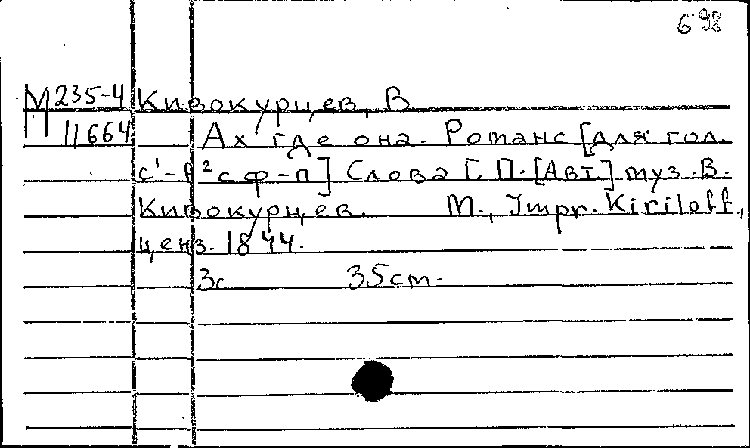 698
М 235-4 Кивокурцев, В
11664 Ах где она. Романс [для гол.
с¹- f² с ф-п] Слова Г. П. [Авт] муз. В.
Кивокурцев. М., Impr. Kiriloff,
ценз. 1844.
3с 35cm.